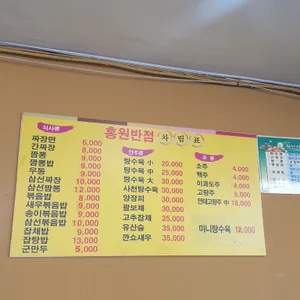 홍원반점 차림표
식사류
짜장면 6,000
간짜장 8,000
짬뽕 9,000
짬뽕밥 9,000
우동 9,000
삼선짜장 10,000
삼선짬뽕 12,000
볶음밥 8,000
새우볶음밥 9,000
송이볶음밥 9,000
삼선볶음밥 10,000
잡채밥 9,000
잡탕밥 13,000
군만두 5,000
안주류
탕수육 小 20,000
탕수육 中 25,000
탕수육 大 30,000
사천탕수육 30,000
양장피 30,000
팔보채 30,000
고추잡채 25,000
유산슬 35,000
깐쇼새우 35,000
주류
소주 4,000
맥주 4,000
이과두주 4,000
고량주 5,000
연태고량주 中 18,000
미니탕수육 12,000